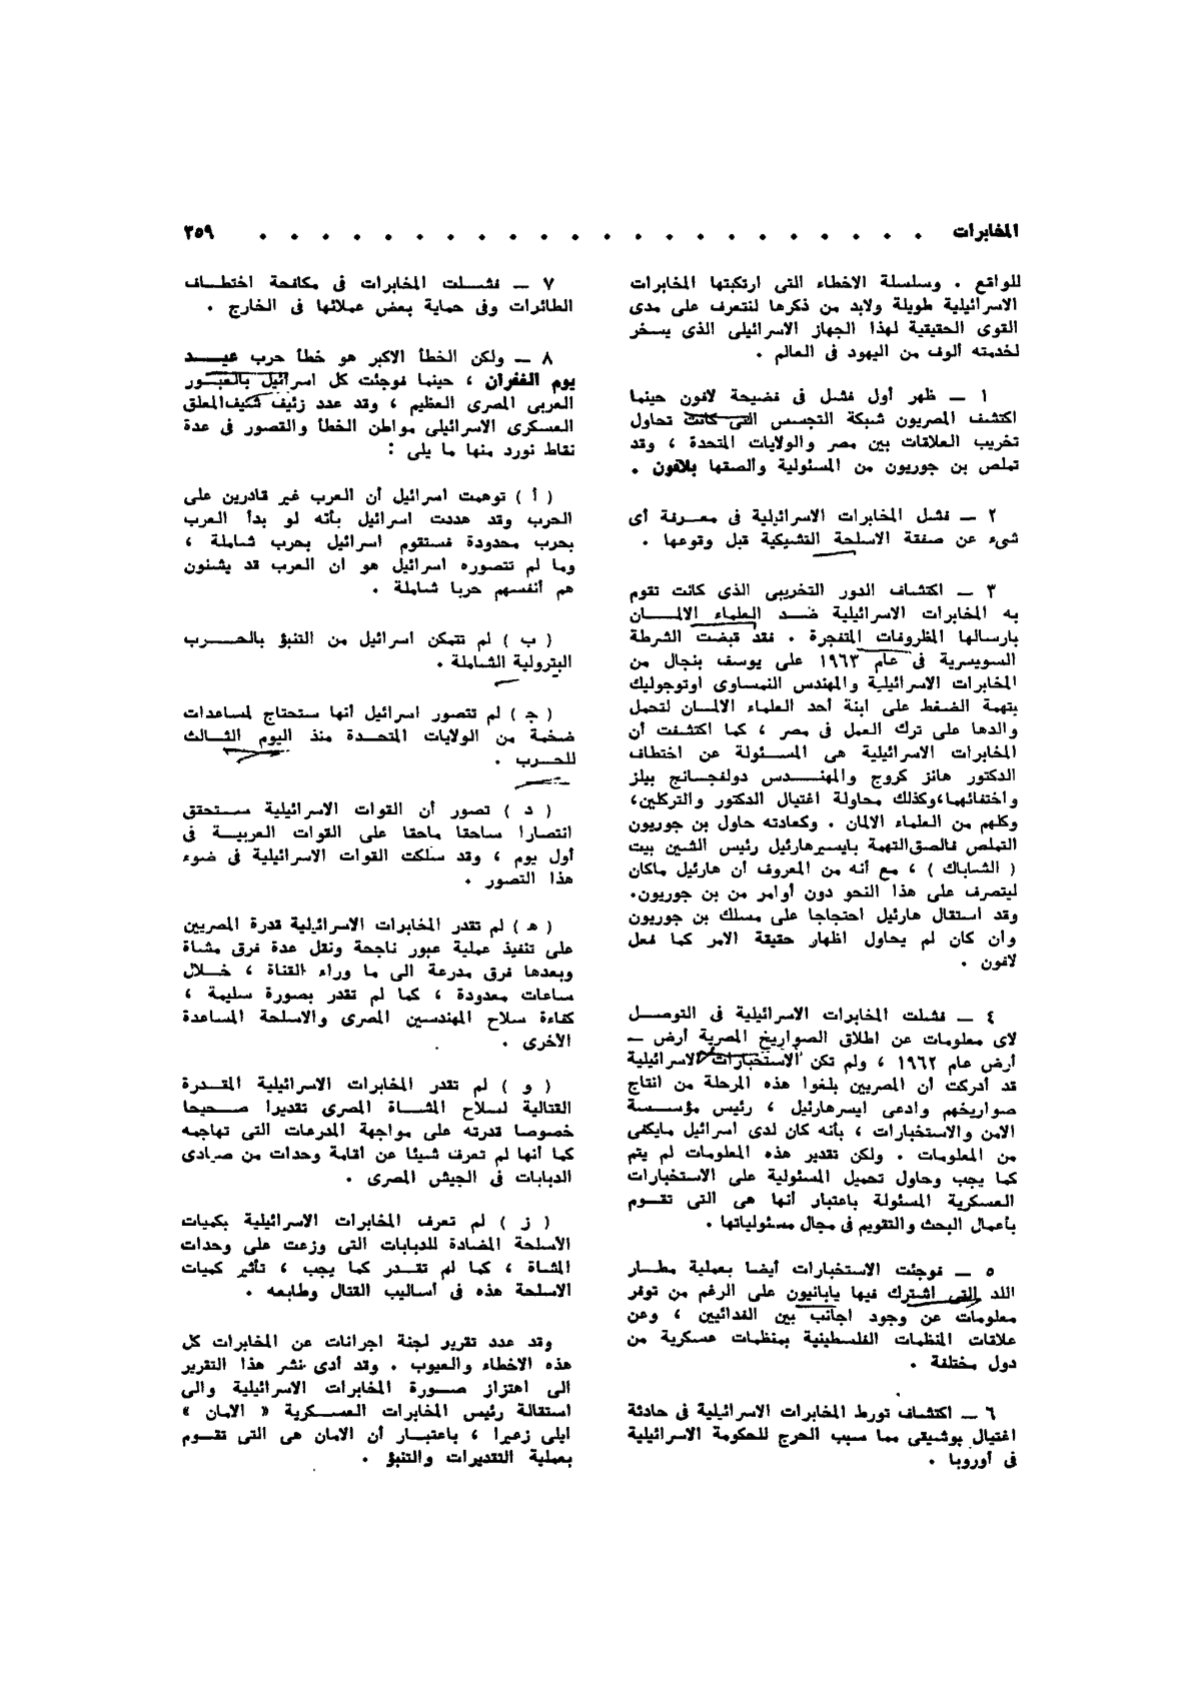 المخابرات . . . . . . . . . . . . . . . . . . . . . . ٣٥٩
للواقع . وسلسلة الاخطاء التى ارتكبتها المخابرات
الاسرائيلية طويلة ولابد من ذكرها لنتعرف على مدى
القوى الحقيقية لهذا الجهاز الاسرائيلى الذى يسخر
لخدمته ألوف من اليهود فى العالم .
١ — ظهر أول فشل فى فضيحة لافون حينما
اكتشف المصريون شبكة التجسس التى كانت تحاول
تخريب العلاقات بين مصر والولايات المتحدة ، وقد
تملص بن جوريون من المسئولية وألصقها بلافون .
٢ — فشل المخابرات الاسرائيلية فى معـرفة أى
شىء عن صفقة الاسلحة التشيكية قبل وقوعها .
٣ — اكتشاف الدور التخريبى الذى كانت تقوم
به المخابرات الاسرائيلية ضـد العلماء الالمـــان
بارسالها المظروفات المتفجرة . فقد قبضت الشرطة
السويسرية فى عام ١٩٦٣ على يوسف بنجال من
المخابرات الاسرائيلية والمهندس النمساوى اوتوجوليك
بتهمة الضغط على ابنة أحد العلماء الالمـان لتحمل
والدها على ترك العمل فى مصر ، كما اكتشفت أن
المخابرات الاسرائيلية هى المســئولة عن اختطاف
الدكتور هانز كروج والمهنــدس دولفجــانج بيلز
واختفائهما،وكذلك محاولة اغتيال الدكتور والتركلين،
وكلهم من العلماء الالمان . وكعادته حاول بن جوريون
التملص فالصق‌التهمة بايسيرهارئيل رئيس الشين بيت
( الشاباك ) ، مع أنه من المعروف أن هارئيل ماكان
ليتصرف على هذا النحو دون أوامر من بن جوريون.
وقد استقال هارئيل احتجاجا على مسلك بن جوريون
وأن كان لم يحاول اظهار حقيقة الامر كما فعل
لافون .
٤ — فشلت المخابرات الاسرائيلية فى التوصــل
لاى معلومات عن اطلاق الصواريخ المصرية أرض —
أرض عام ١٩٦٢ ، ولم تكن الاستخبارات الاسرائيلية
قد أدركت أن المصريين بلغوا هذه المرحلة من انتاج
صواريخهم وادعى ايسرهارئيل ، رئيس مؤسـسة
الامن والاستخبارات ، بأنه كان لدى اسرائيل مايكفى
من المعلومات . ولكن تقدير هذه المعلومات لم يتم
كما يجب وحاول تحميل المسئولية على الاستخبارات
العسكرية المسئولة باعتبار أنها هى التى تقـوم
بأعمال البحث والتقويم فى مجال مسئولياتها .
٥ — فوجئت الاستخبارات أيضا بعملية مطــار
اللد التى اشترك فيها يابانيون على الرغم من توفر
معلومات عن وجود اجانب بين الفدائيين ، وعن
علاقات المنظمات الفلسطينية بمنظمات عسكرية من
دول مختلفة .
٦ — اكتشاف تورط المخابرات الاسرائيلية فى حادثة
اغتيال بوشيقى مما سبب الحرج للحكومة الاسرائيلية
فى أوروبا .
٧ — فشــلت المخابرات فى مكافحة اختطــاف
الطائرات وفى حماية بعض عملائها فى الخارج .
٨ — ولكن الخطأ الاكبر هو خطأ حرب عيـــد
يوم الغفران ، حينما فوجئت كل اسرائيل بالعبــور
العربى المصرى العظيم ، وقد عدد زئيف شكيف‌المعلق
العسكرى الاسرائيلى مواطن الخطأ والقصور فى عدة
نقاط نورد منها ما يلى :
( أ ) توهمت اسرائيل أن العرب غير قادرين على
الحرب وقد هددت اسرائيل بأنه لو بدأ العرب
بحرب محدودة فستقوم اسرائيل بحرب شـاملة ،
وما لم تتصوره اسرائيل هو ان العرب قد يشنون
هم أنفسهم حربا شاملة .
( ب ) لم تتمكن اسرائيل من التنبؤ بالحـــرب
البترولية الشاملة .
( ج ) لم تتصور اسرائيل أنها ستحتاج لمساعدات
ضخمة من الولايات المتحـدة منذ اليوم الثــالث
للحــرب .
( د ) تصور أن القوات الاسرائيلية ســتحقق
انتصارا ساحقا ماحقا على القوات العربيــة فى
أول يوم ، وقد سلكت القوات الاسرائيلية فى ضوء
هذا التصور .
( هـ ) لم تقدر المخابرات الاسرائيلية قدرة المصريين
على تنفيذ عملية عبور ناجحة ونقل عدة فرق مشاة
وبعدها فرق مدرعة الى ما وراء القناة ، خــلال
ساعات معدودة ، كما لم تقدر بصورة سليمة ،
كفاءة سلاح المهندسين المصرى والاسلحة المساعدة
الاخرى .
( و ) لم تقدر المخابرات الاسرائيلية المقــدرة
القتالية لسلاح المشـاة المصرى تقديرا صــحيحا
خصوصا قدرته على مواجهة المدرعات التى تهاجمه
كما أنها لم تعرف شيئا عن اقامة وحدات من صيادى
الدبابات فى الجيش المصرى .
( ز ) لم تعرف المخابرات الاسرائيلية بكميات
الأسلحة المضادة للدبابات التى وزعت على وحدات
المشاة ، كما لم تقــدر كما يجب ، تأثير كميات
الاسلحة هذه فى أساليب القتال وطابعه .
وقد عدد تقرير لجنة اجرانات عن المخابرات كل
هذه الاخطاء والعيوب . وقد أدى نشر هذا التقرير
الى اهتزاز صــورة المخابرات الاسرائيلية والى
استقالة رئيس المخابرات العسـكرية « الامان »
ايلى زعيرا ، باعتبـار أن الامان هى التى تقــوم
بعملية التقديرات والتنبؤ .